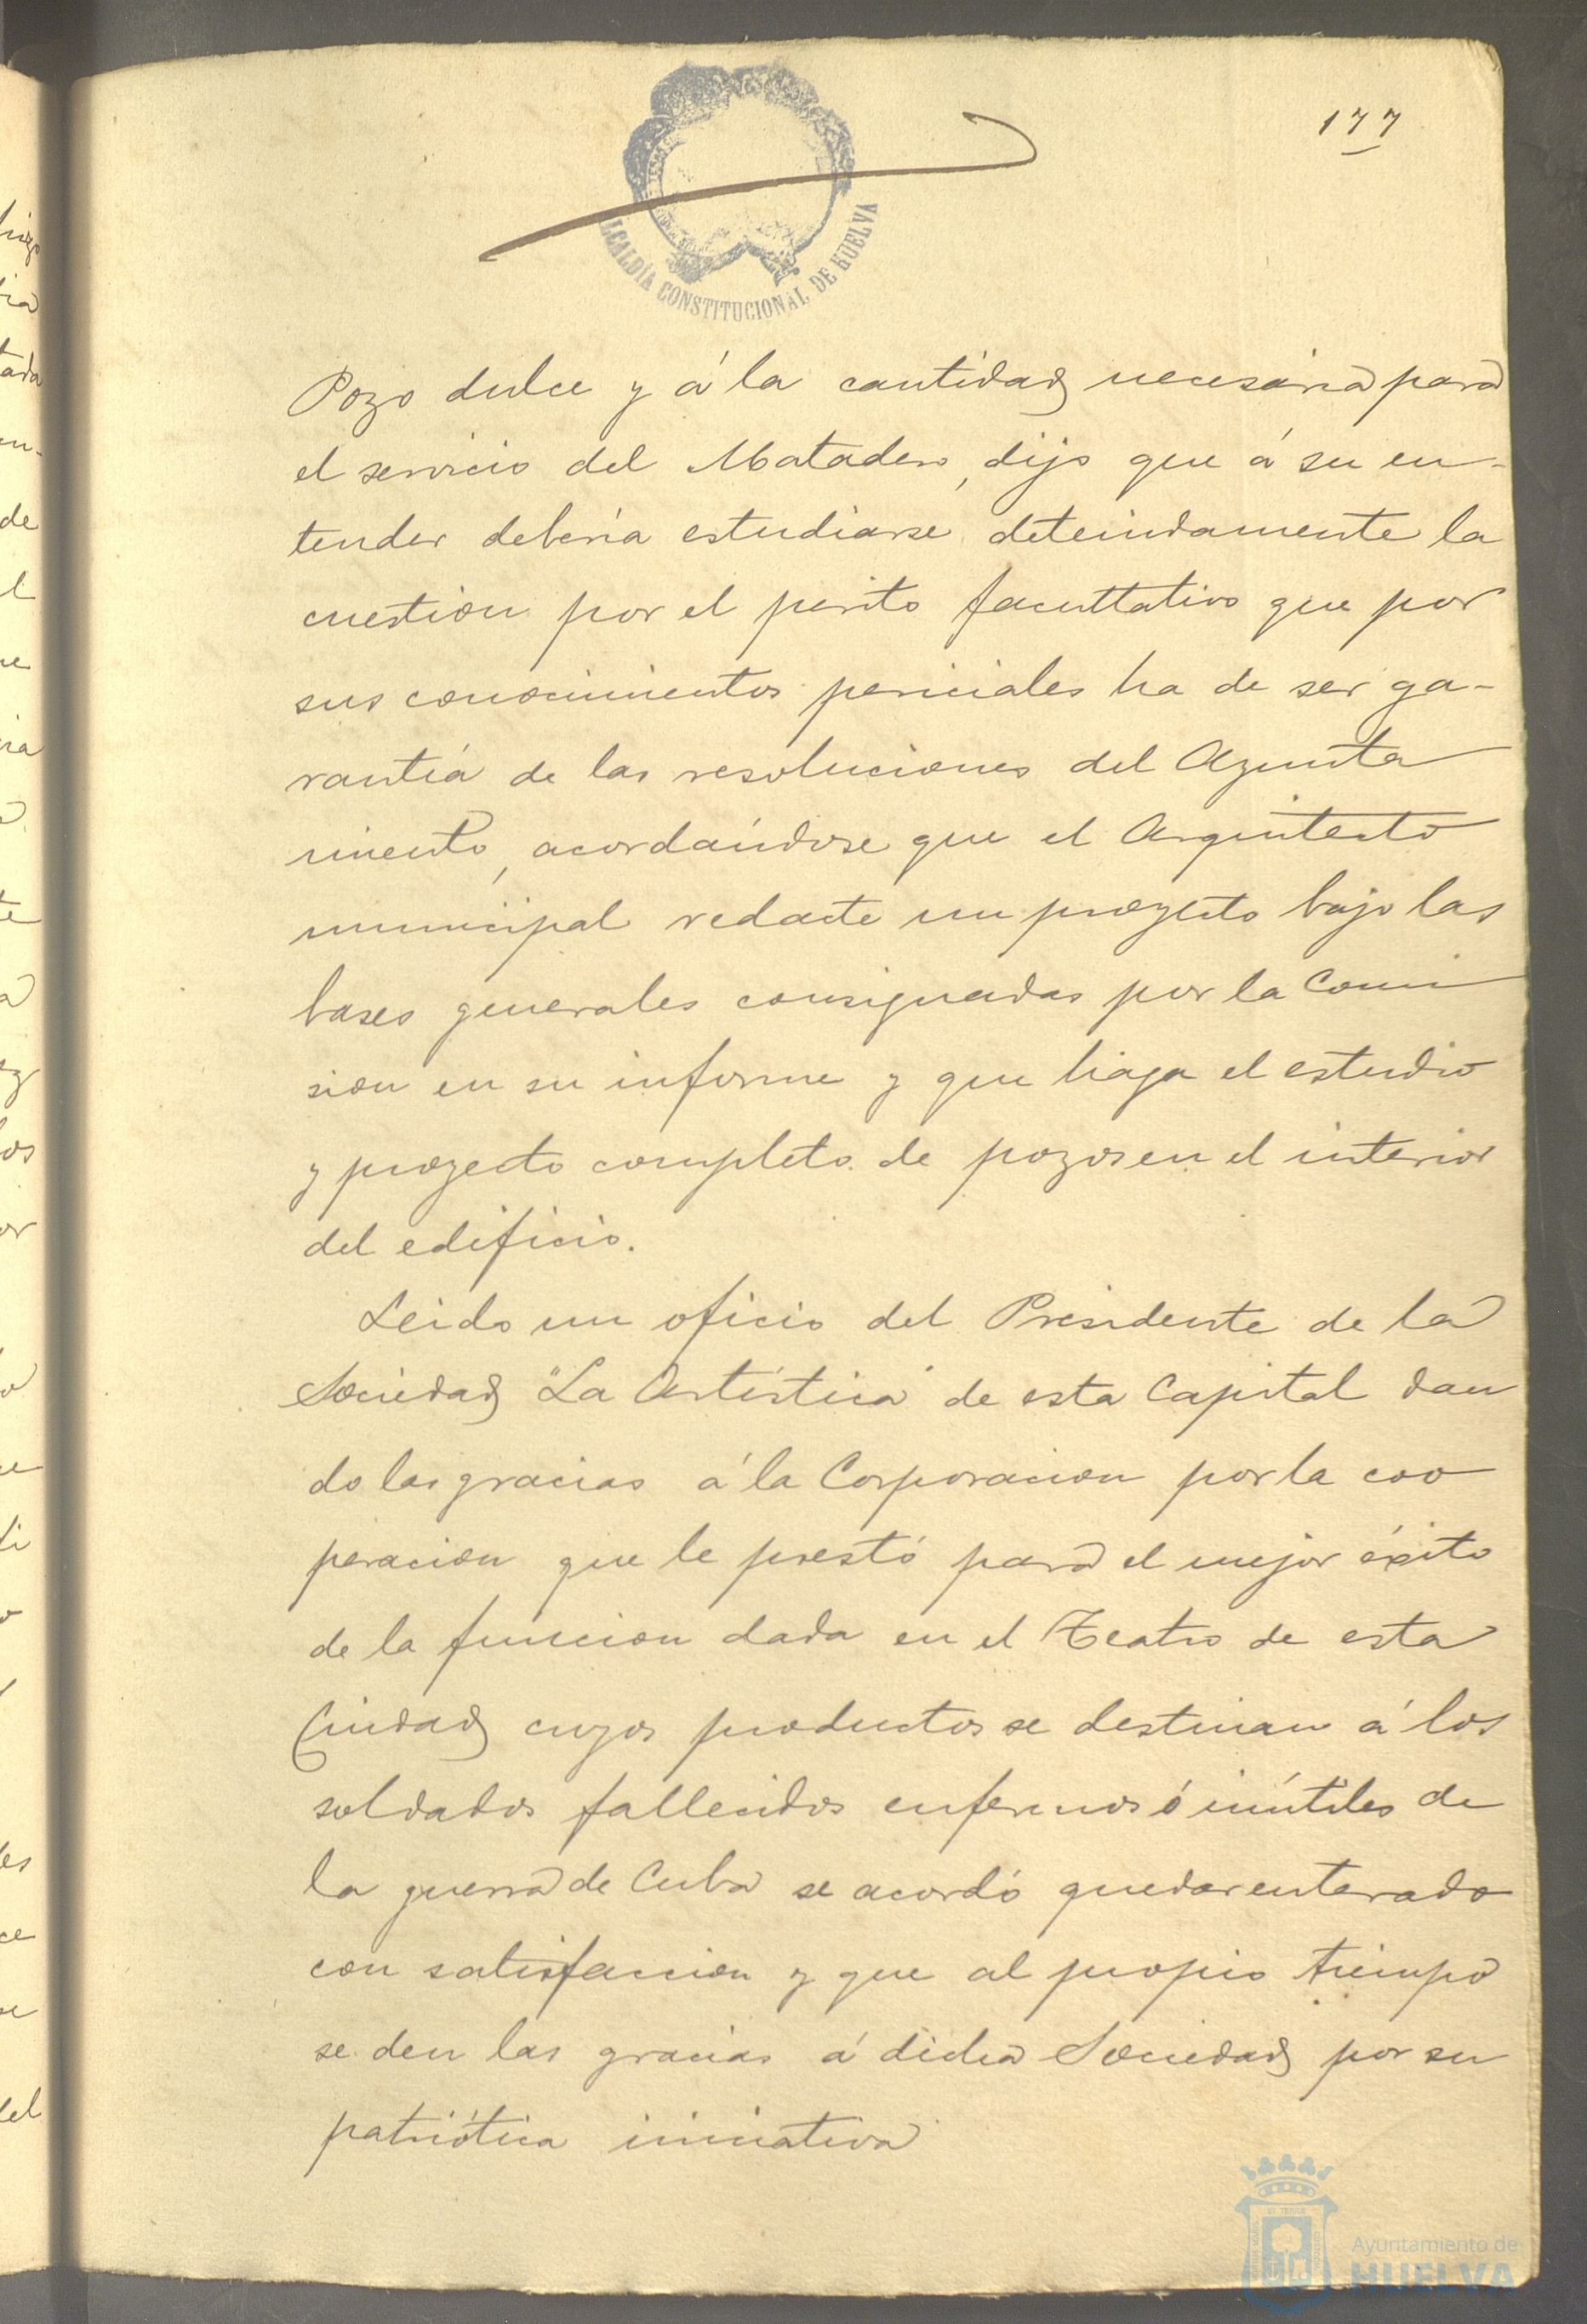 177
ALCALDÍA CONSTITUCIONAL DE HUELVA
Pozo dulce y á la cantidad necesária para
el servicio del Matadero, dijo que á su en-
tender debería estudiarse detenidamente la
cuestion por el perito facultativo que por
sus conocimientos periciales ha de ser ga-
rantía de las resoluciones del Ayunta
miento, acordándose que el Arquitecto
municipal redacte un proyecto bajo las
bases generales consignadas por la Comi
sion en su informe y que haga el estudio
y proyecto completo de pozos en el interior
del edificio.
Leido un oficio del Presidente de la
Sociedad "La Artística" de esta Capital dan
do las gracias á la Corporacion por la coo
peracion que le prestó para el mejor éxito
de la funcion dada en el Teatro de esta
Ciudad cuyos productos se destinan á los
soldados fallecidos enfermos ó inútiles de
la guerra de Cuba se acordó quedar enterado
con satisfaccion y que al propio tiempo
se den las gracias á dicha Sociedad por su
patriótica iniciativa
Ayuntamiento de
HUELVA